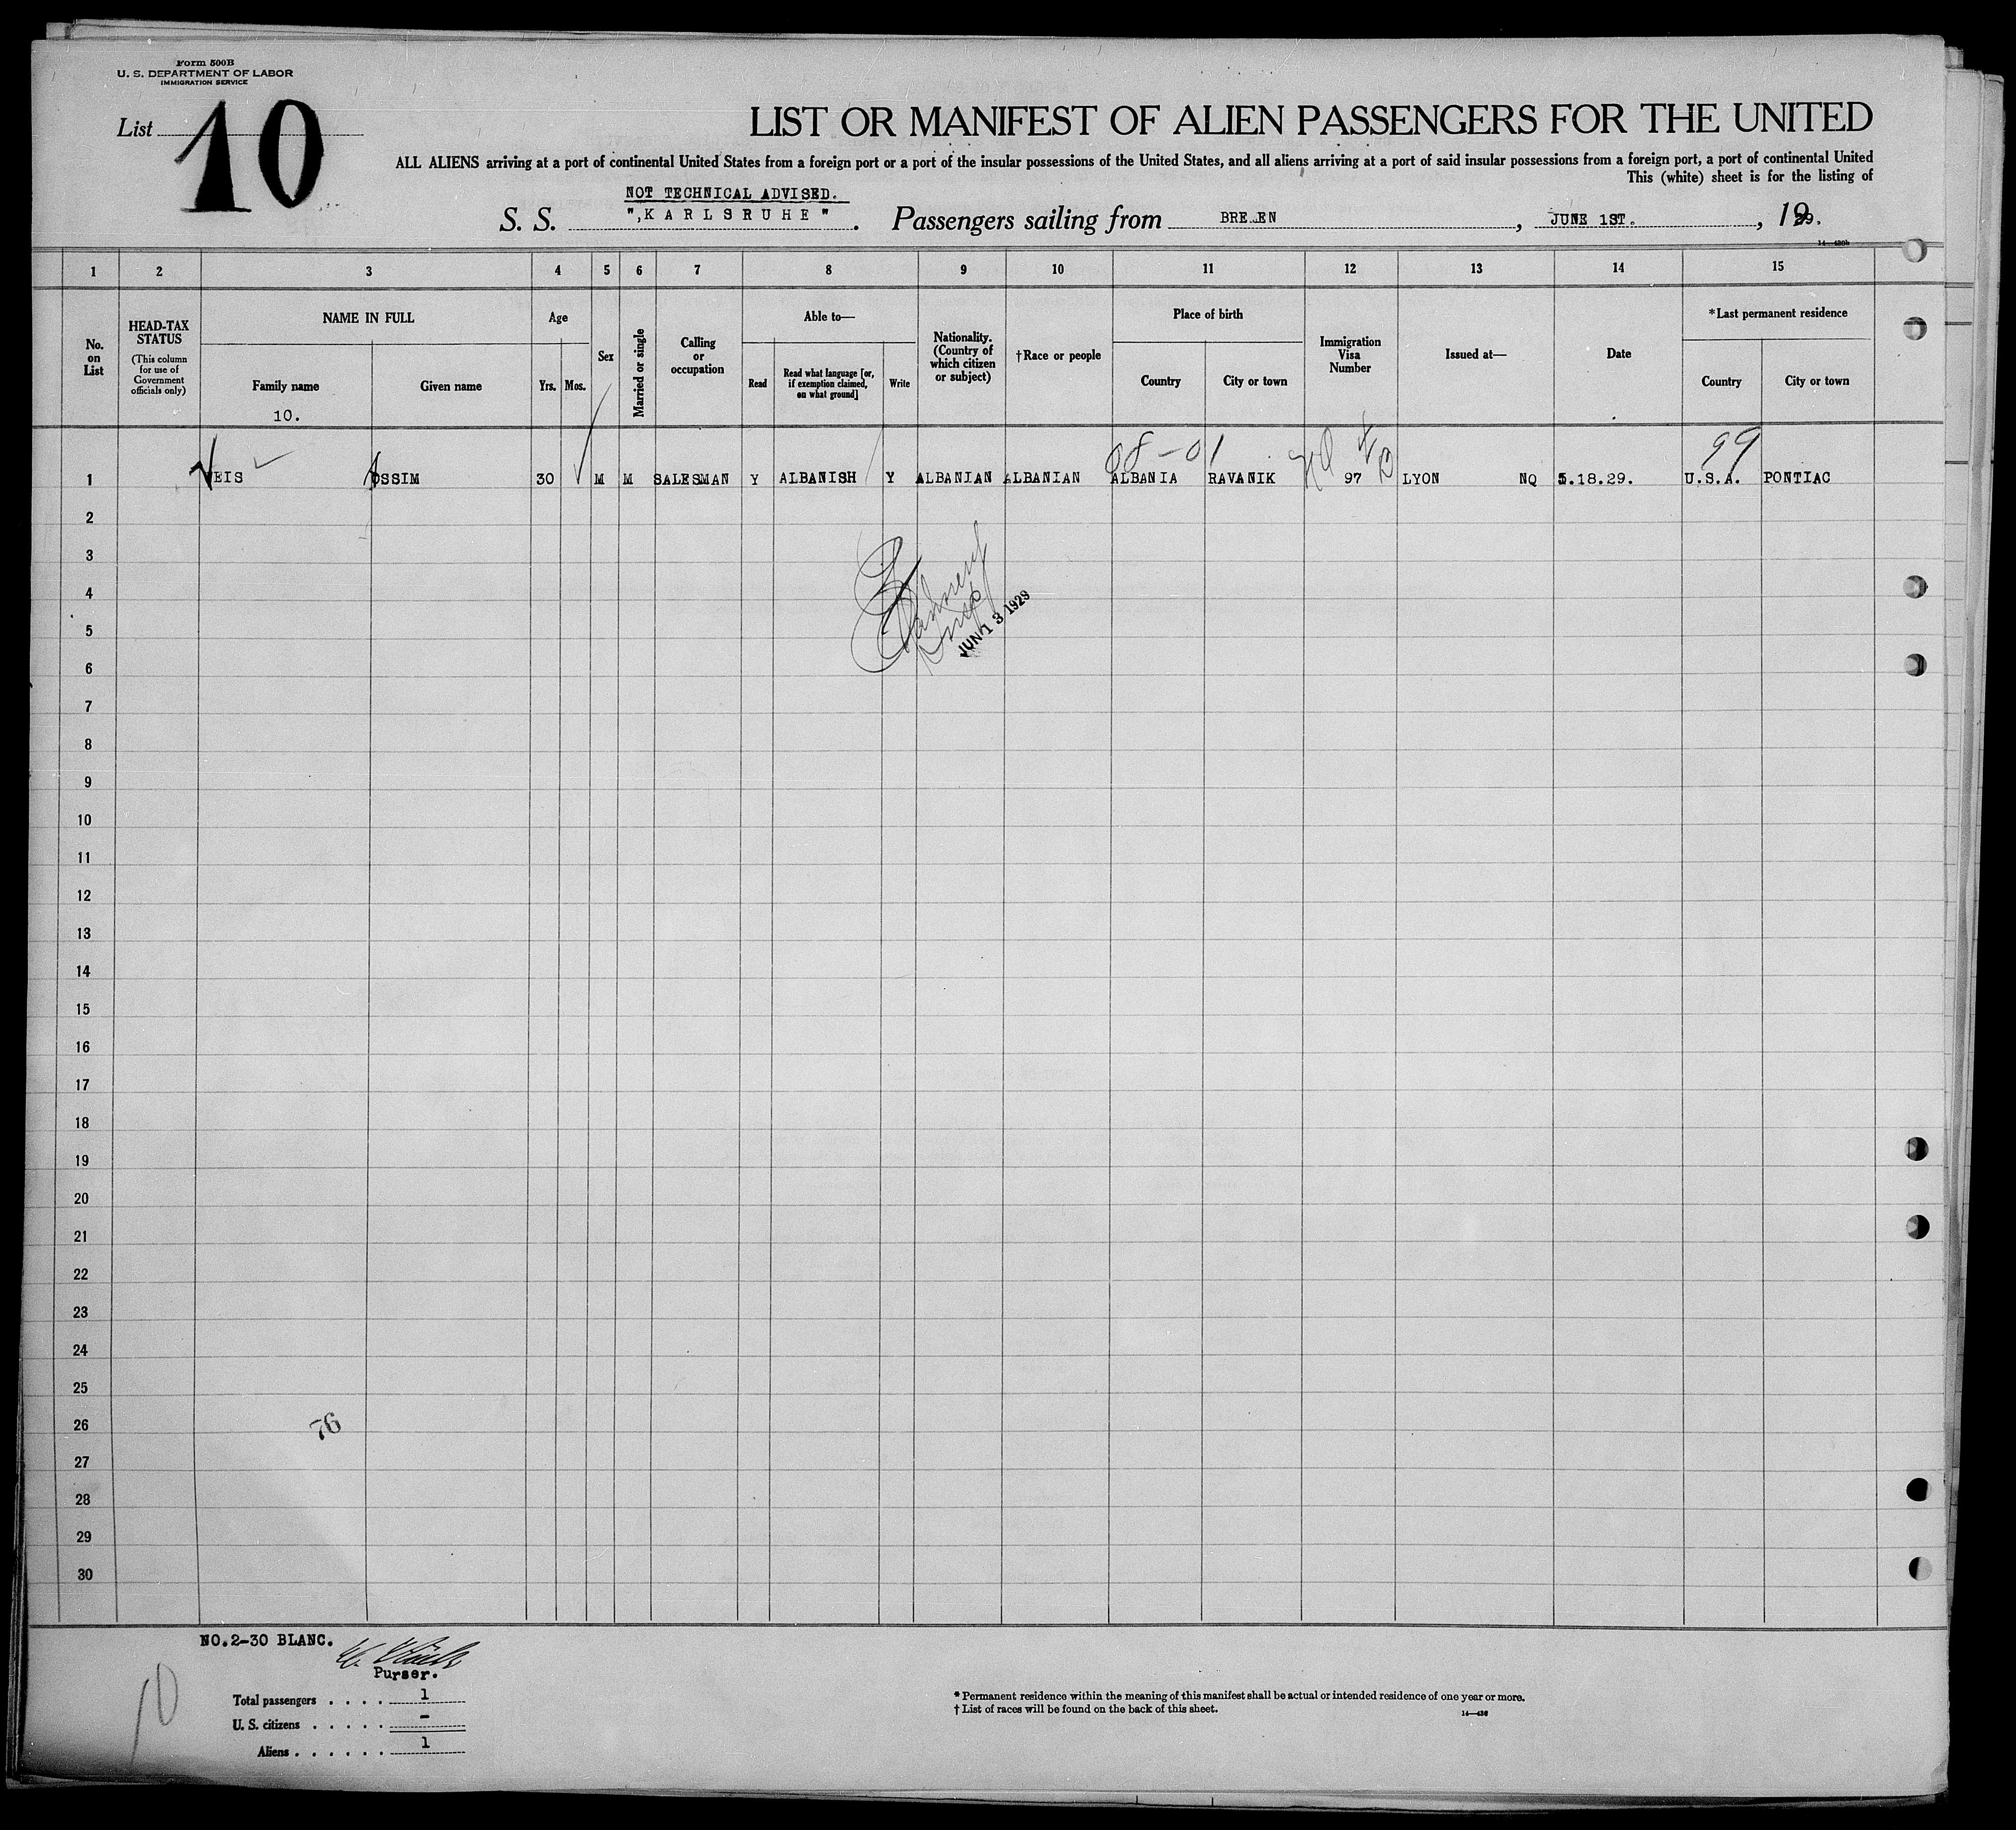 Form 500B
U. S. DEPARTMENT OF LABOR
IMMIGRATION SERVICE
List 10
LIST OR MANIFEST OF ALIEN PASSENGERS FOR THE UNITED
ALL ALIENS arriving at a port of continental United States from a foreign port or a port of the insular possessions of the United States, and all aliens arriving at a port of said insular possessions from a foreign port, a port of continental United
This (white) sheet is for the listing of
NOT TECHNICAL ADVISED.
S. S. ",KARLSRUHE". Passengers sailing from BRE EN, JUNE 1ST., 1929.
1 2 3 4 5 6 7 8 9 10 11 12 13 14 15
No. on List
HEAD-TAX STATUS
(This column for use of Government officials only)
NAME IN FULL
Family name
Given name
10.
Age
Yrs.
Mos.
Sex
Married or single
Calling or occupation
Able to—
Read
Read what language [or, if exemption claimed, on what ground]
Write
Nationality. (Country of which citizen or subject)
†Race or people
Place of birth
Country
City or town
Immigration Visa Number
Issued at—
Date
*Last permanent residence
Country
City or town
08-01 99
1 EIS OSSIM 30 M M SALESMAN Y ALBANISH Y ALBANIAN ALBANIAN ALBANIA RAVANIK 97 LYON NQ 5.18.29. U.S.A. PONTIAC
2
3
4
5
JUN 13 1929
6
7
8
9
10
11
12
13
14
15
16
17
18
19
20
21
22
23
24
25
26
76
27
28
29
30
NO.2-30 BLANC.
Purser.
10
Total passengers . . . . 1
U. S. citizens . . . . . -
Aliens . . . . . . 1
* Permanent residence within the meaning of this manifest shall be actual or intended residence of one year or more.
† List of races will be found on the back of this sheet.